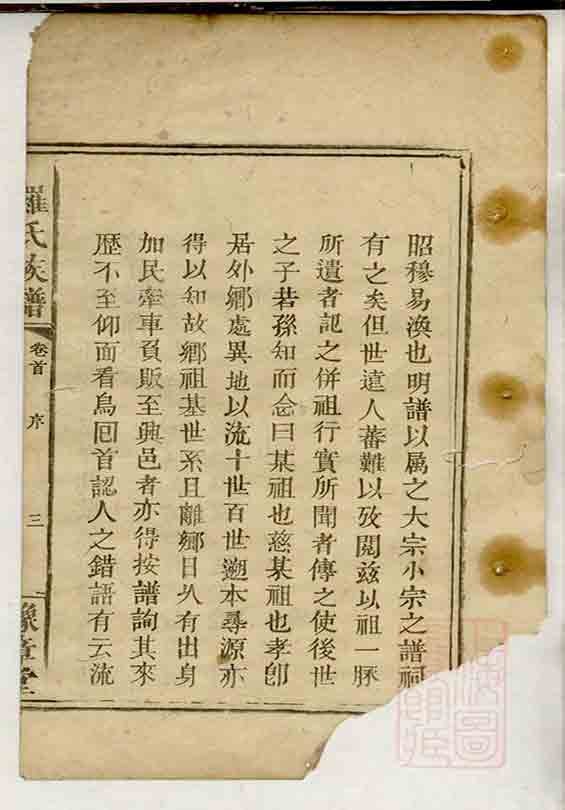 昭穆易渙也明譜以属之大宗小宗之譜祠
有之矣但世遠人蕃難以攷閲兹以祖一脉
所遺者記之併祖行實所聞者傳之使後世
之子若孫知而念曰某祖也慈某祖也孝卽
居外鄉處異地以流十世百世遡本尋源亦
得以知故鄉祖基世系且離鄉日乆有出身
加民牽車負販至興邑者亦得按譜詢其來
歴不至仰面看鳥囘首認人之錯語有云流
羅氏族譜
卷首
序
三
豫章堂